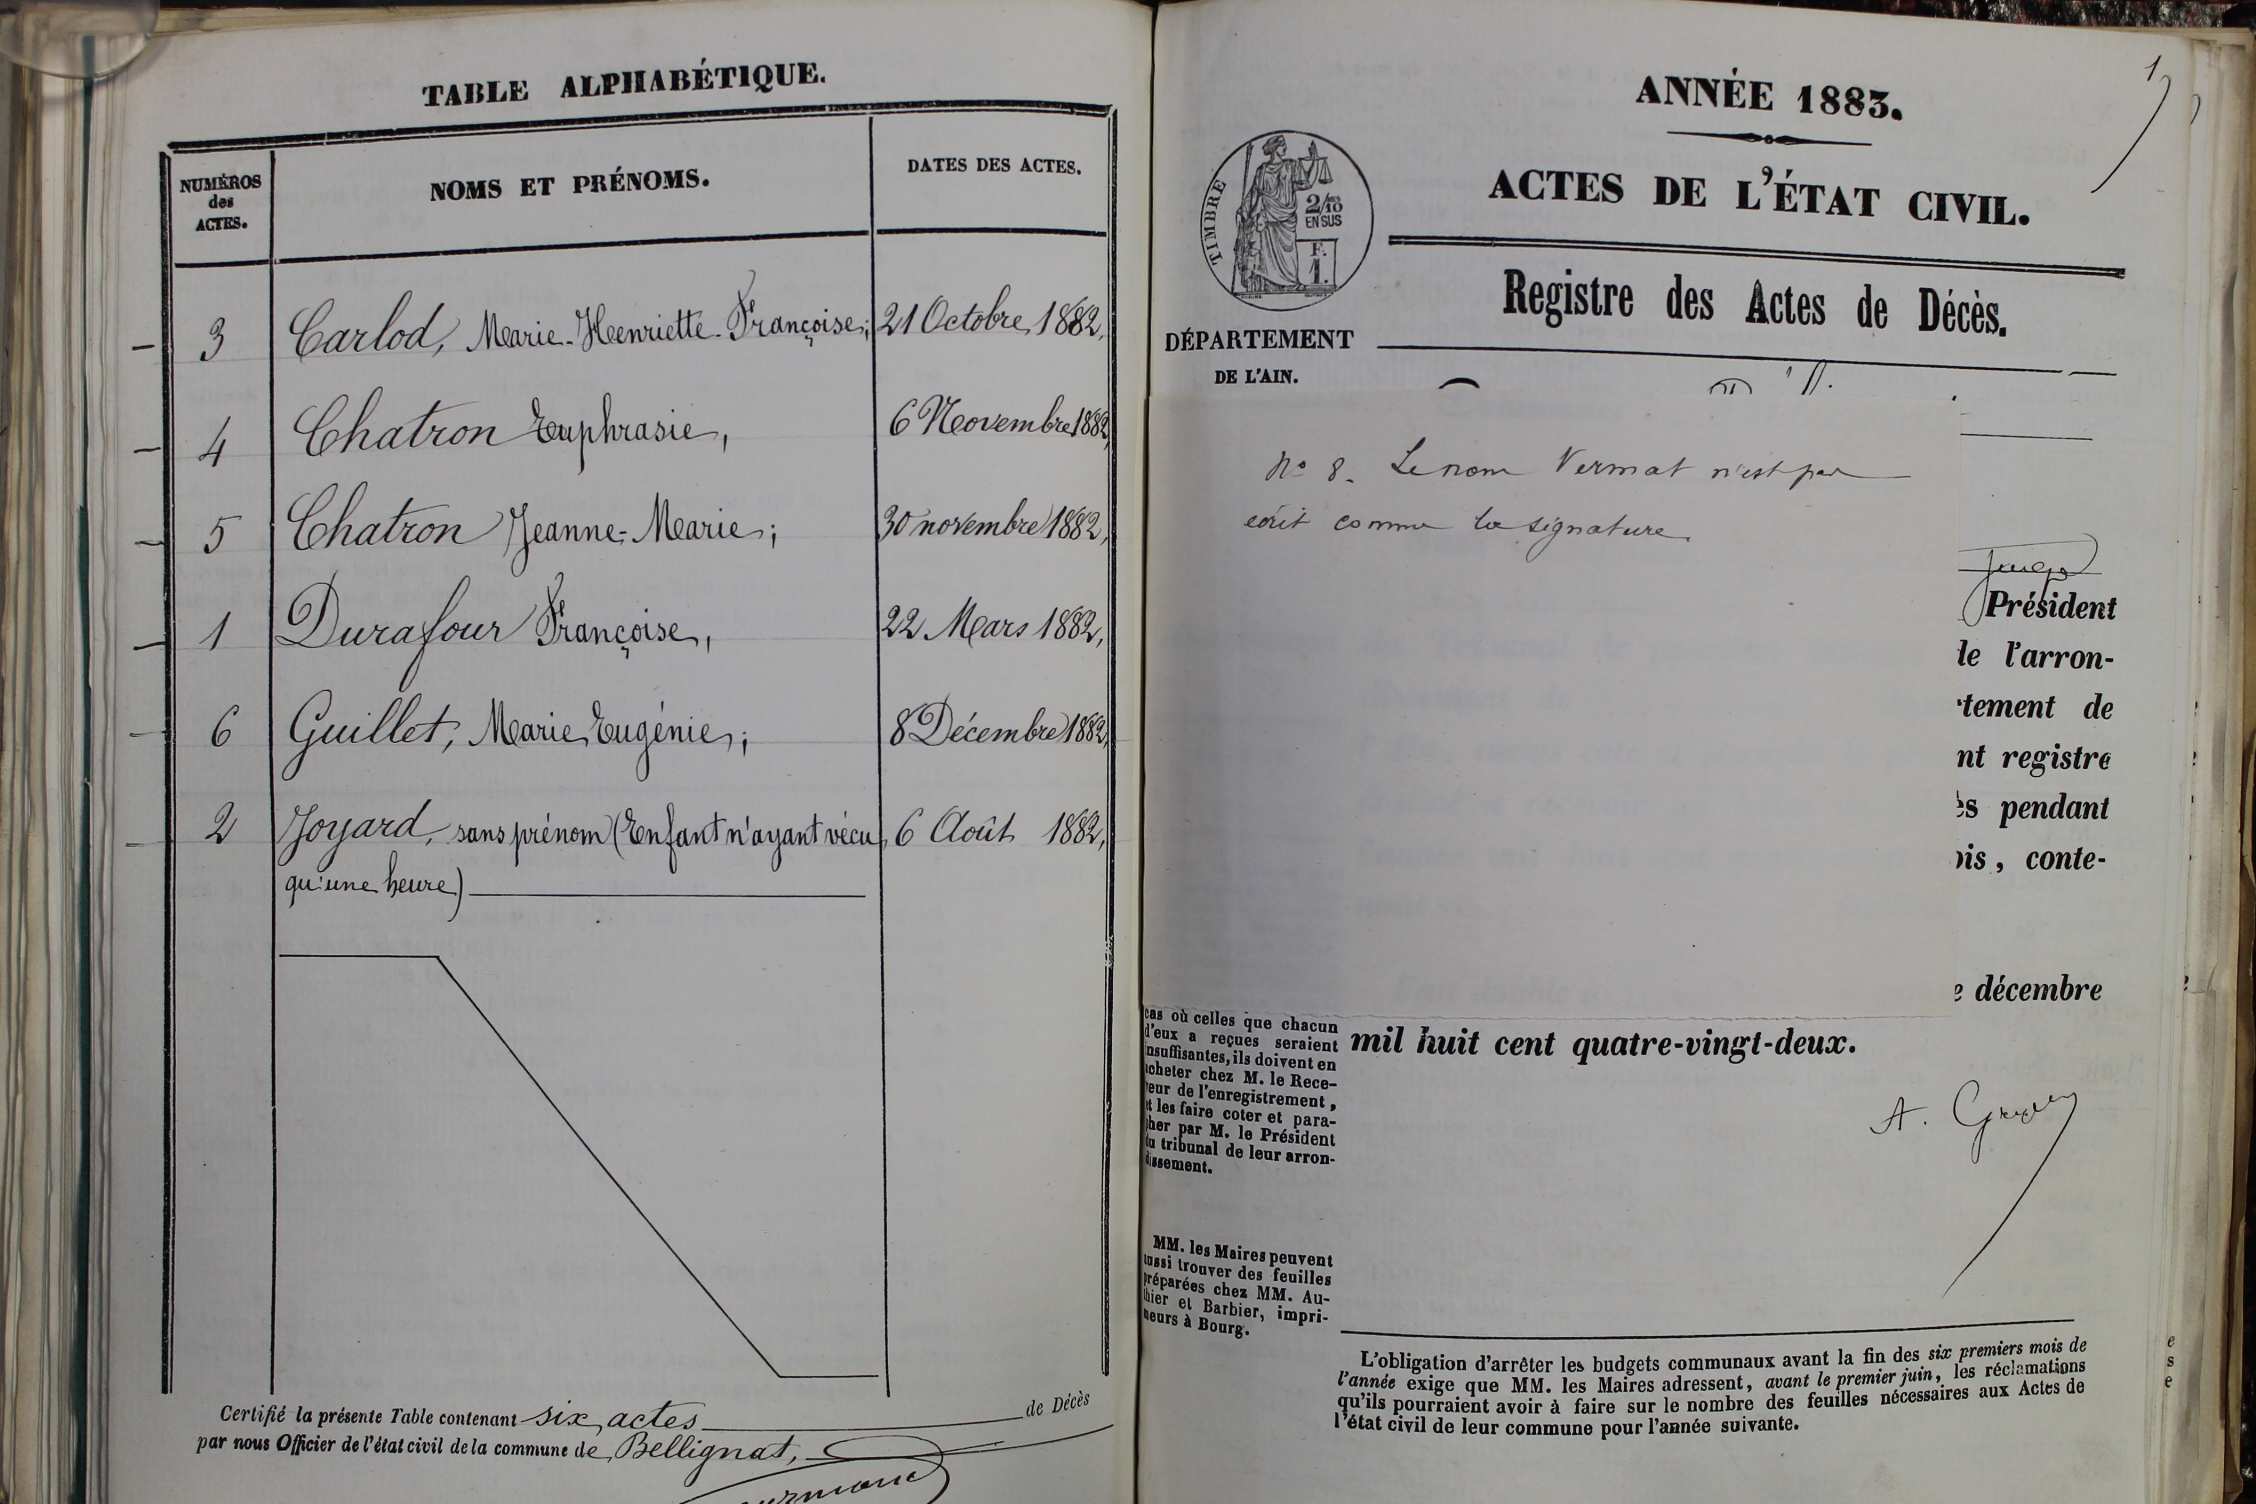 TABLE ALPHABÉTIQUE.
NUMÉROS
des
ACTES.
NOMS ET PRÉNOMS.
DATES DES ACTES.
3 Carlod, Marie-Henriette-Françoise; 21 Octobre 1882,
4 Chatron Euphrasie, 6 Novembre 1882,
5 Chatron Jeanne-Marie; 30 novembre 1882,
1 Durafour Françoise, 22 Mars 1882,
6 Guillet, Marie Eugénie; 8 Décembre 1882,
2 Joyard, sans prénom (Enfant n'ayant vécu 6 Août 1882,
qu'une heure)
Certifié la présente Table contenant six actes de Décès
par nous Officier de l'état civil de la commune de Bellignat,
1
ANNÉE 1883.
ACTES DE L'ÉTAT CIVIL.
TIMBRE
2/10
EN SUS
F.
1.
Registre des Actes de Décès.
DÉPARTEMENT
DE L'AIN.
No 8. Le nom Vermat n'est pas
écrit comme la signature
Président
de l'arron-
tement de
nt registre
pendant
, conte-
décembre
mil huit cent quatre-vingt-deux.
cas où celles que chacun
d'eux a reçues seraient
insuffisantes, ils doivent en
acheter chez M. le Rece-
veur de l'enregistrement,
et les faire coter et para-
pher par M. le Président
du tribunal de leur arron-
dissement.
A.
MM. les Maires peuvent
aussi trouver des feuilles
préparées chez MM. Au-
thier et Barbier, impri-
meurs à Bourg.
L'obligation d'arrêter les budgets communaux avant la fin des six premiers mois de
l'année exige que MM. les Maires adressent, avant le premier juin, les réclamations
qu'ils pourraient avoir à faire sur le nombre des feuilles nécessaires aux Actes de
l'état civil de leur commune pour l'année suivante.